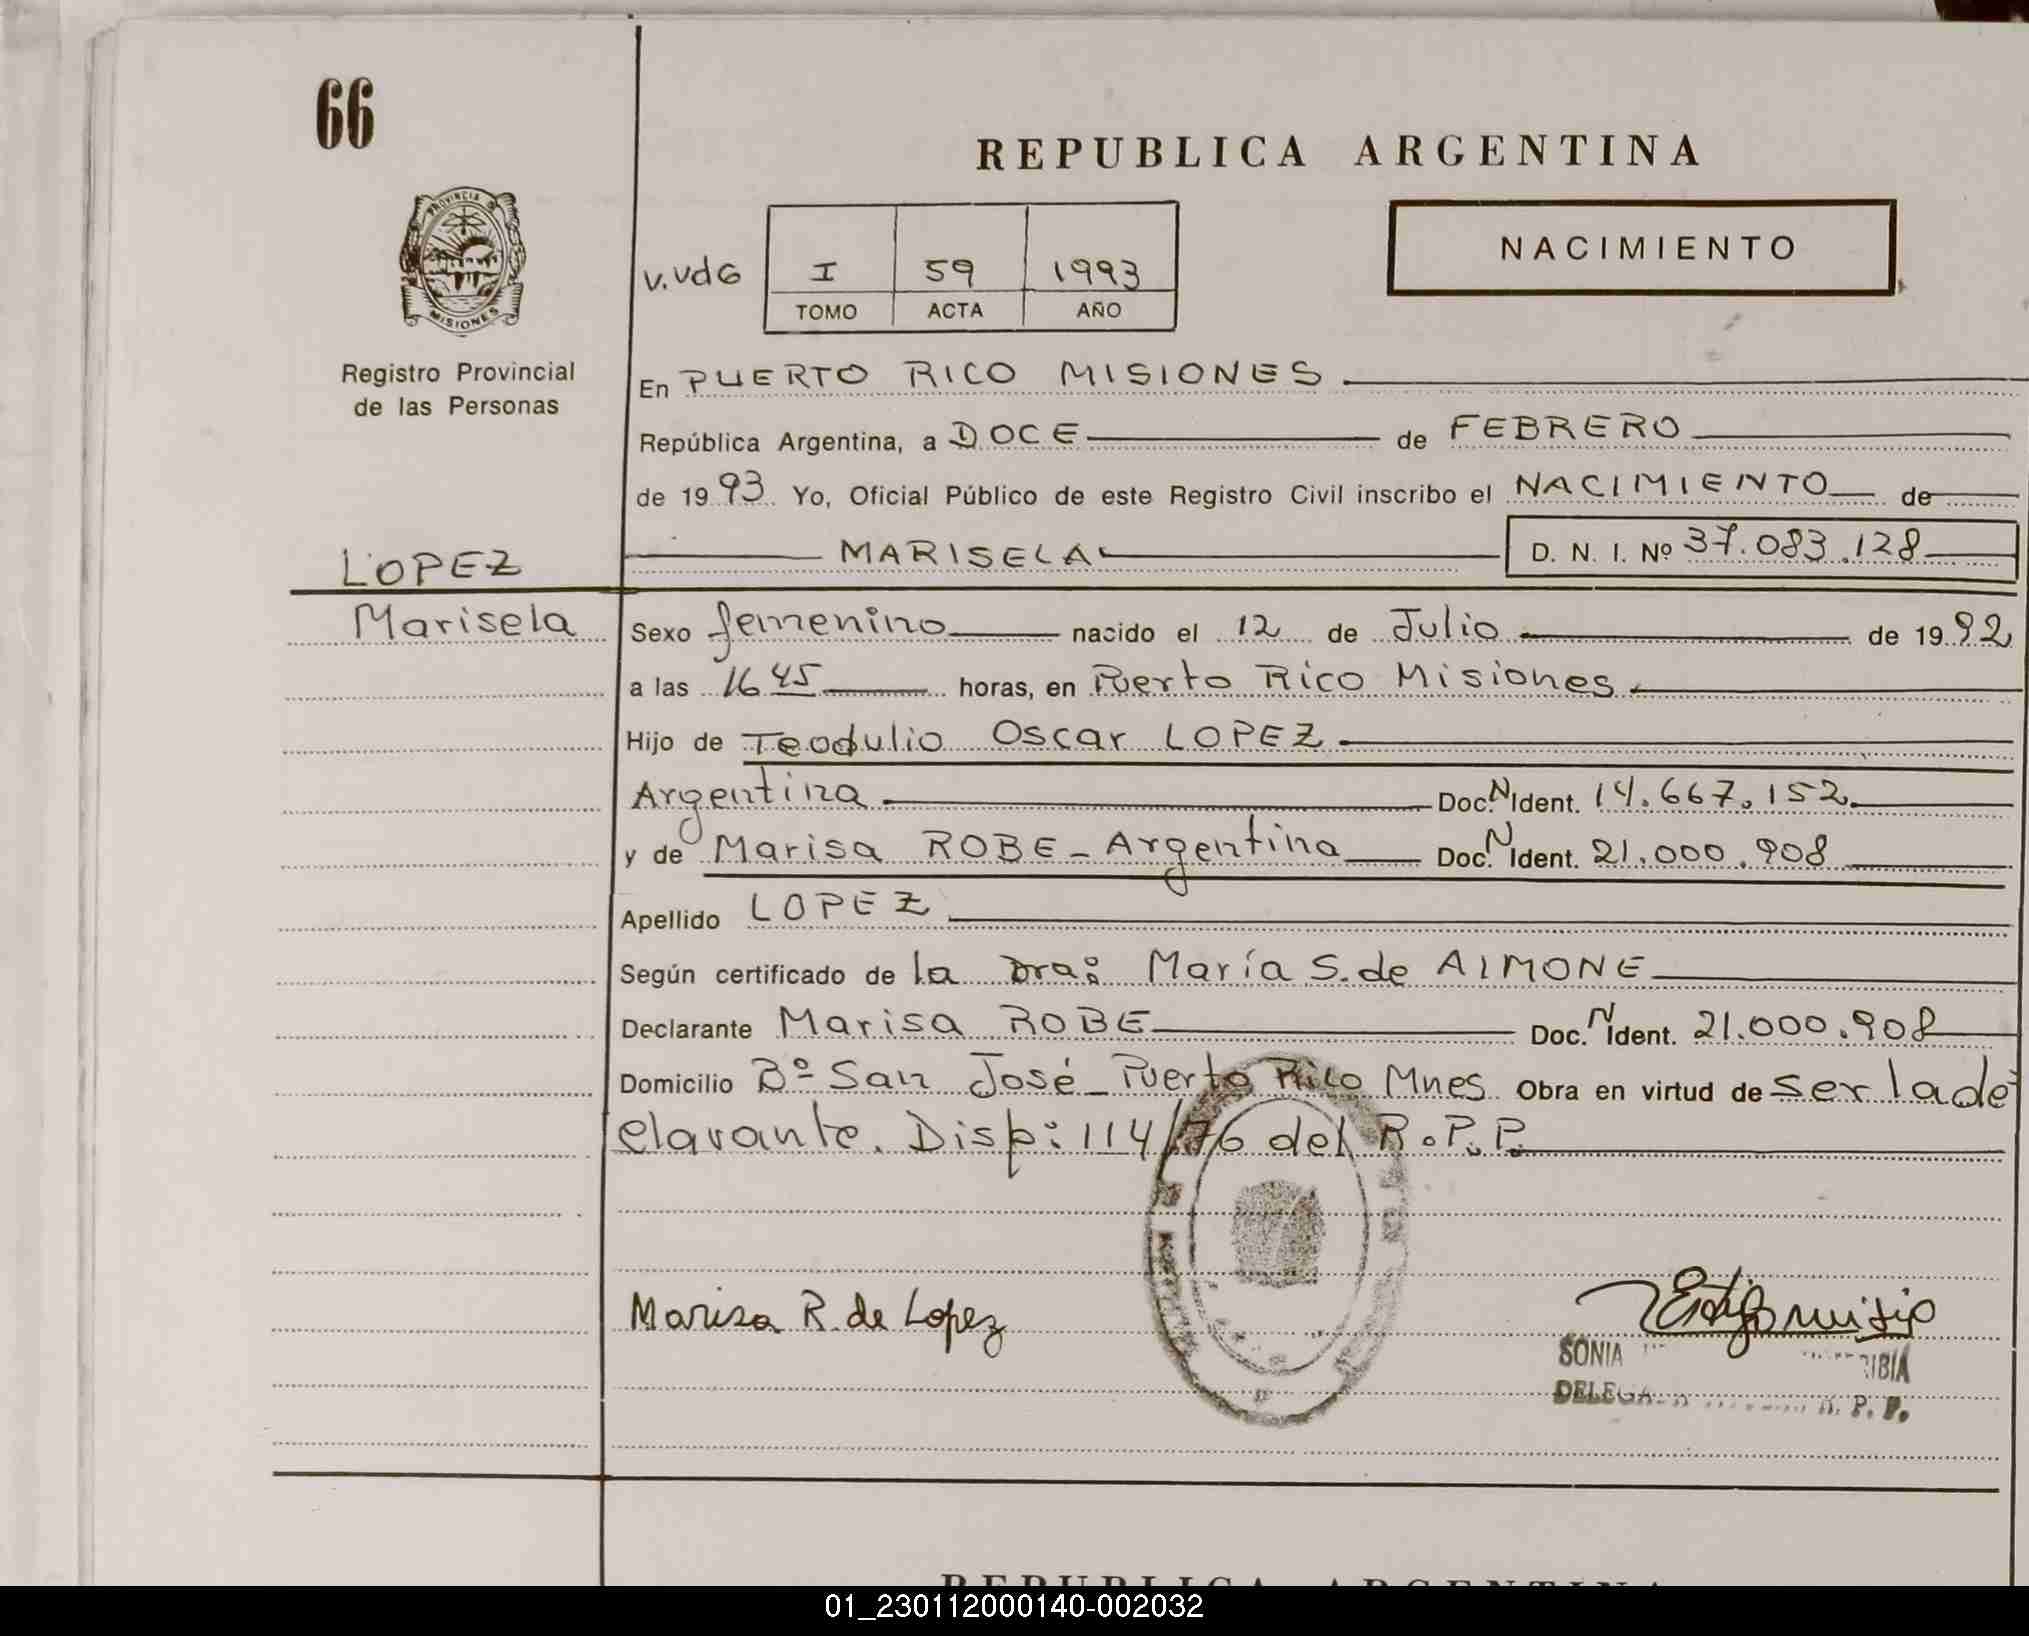 66
REPUBLICA ARGENTINA
PROVINCIA DE
MISIONES
NACIMIENTO
v.vdG I 59 1993
TOMO ACTA AÑO
Registro Provincial
de las Personas
En PUERTO RICO MISIONES
República Argentina, a DOCE de FEBRERO
de 1993 Yo, Oficial Público de este Registro Civil inscribo el NACIMIENTO de
MARISELA D. N. I. Nº 37.083.128
LOPEZ
Marisela
Sexo femenino nacido el 12 de Julio de 1992
a las 16 45 horas, en Puerto Rico Misiones
Hijo de Teodulio Oscar LOPEZ
Argentina Doc. N Ident. 14.667.152
y de Marisa ROBE - Argentina Doc. N Ident. 21.000.908
Apellido LOPEZ
Según certificado de la Dra: María S. de AIMONE
Declarante Marisa ROBE Doc. N Ident. 21.000.908
Domicilio Bº San José - Puerto Rico Mnes Obra en virtud de ser la de
clarante. Disp: 114/76 del R.P.P.
Marisa R. de Lopez
SONIA
R. P. P.
REPUBLICA ARGENTINA
01_230112000140-002032